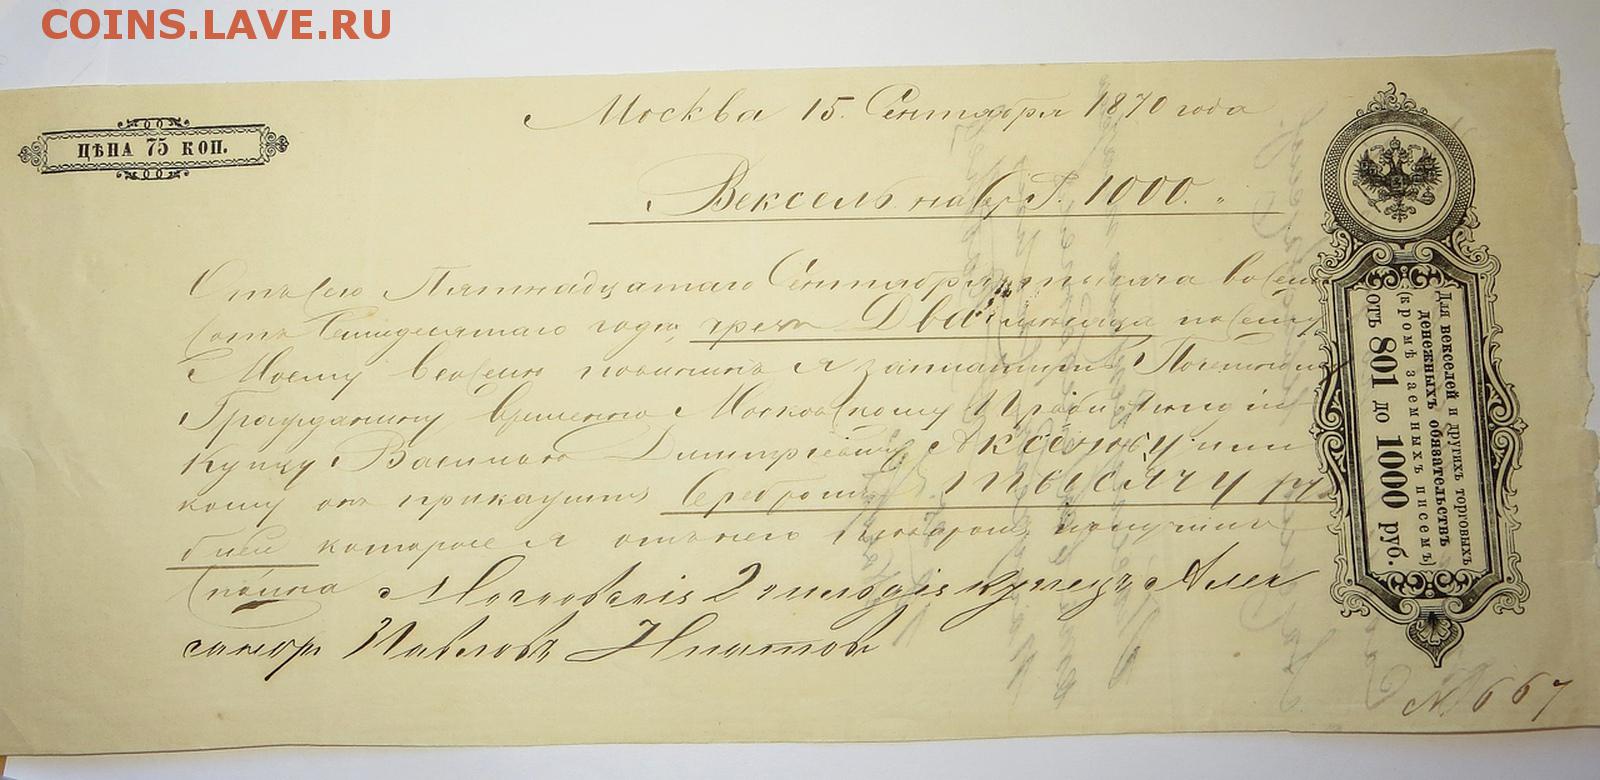 COINS.LAVE.RU
ЦѢНА 75 КОП.
Москва 15. Сентября 1870 года
Вексель на 1000.
Отъ сего Пятнадцатаго Сентября тысяча восем
сотъ семидесятаго года, чрезъ Два месяца по сему
Моему векселю повиненъ я заплатить
Гражданину временно Московскому 1й гильдіи
купцу Василью Дмитріевичу Аксенову или
кому онъ прикажитъ серебромъ тысячу ру
блей которое я отъ него получилъ
сполна Московскій 2 гильдіи купецъ Алек
сандръ Павловъ Ипатов
Для векселей и другихъ торговыхъ
денежныхъ обязательствъ
(кромѣ заемныхъ писемъ)
отъ 801 до 1000 руб.
№ 667